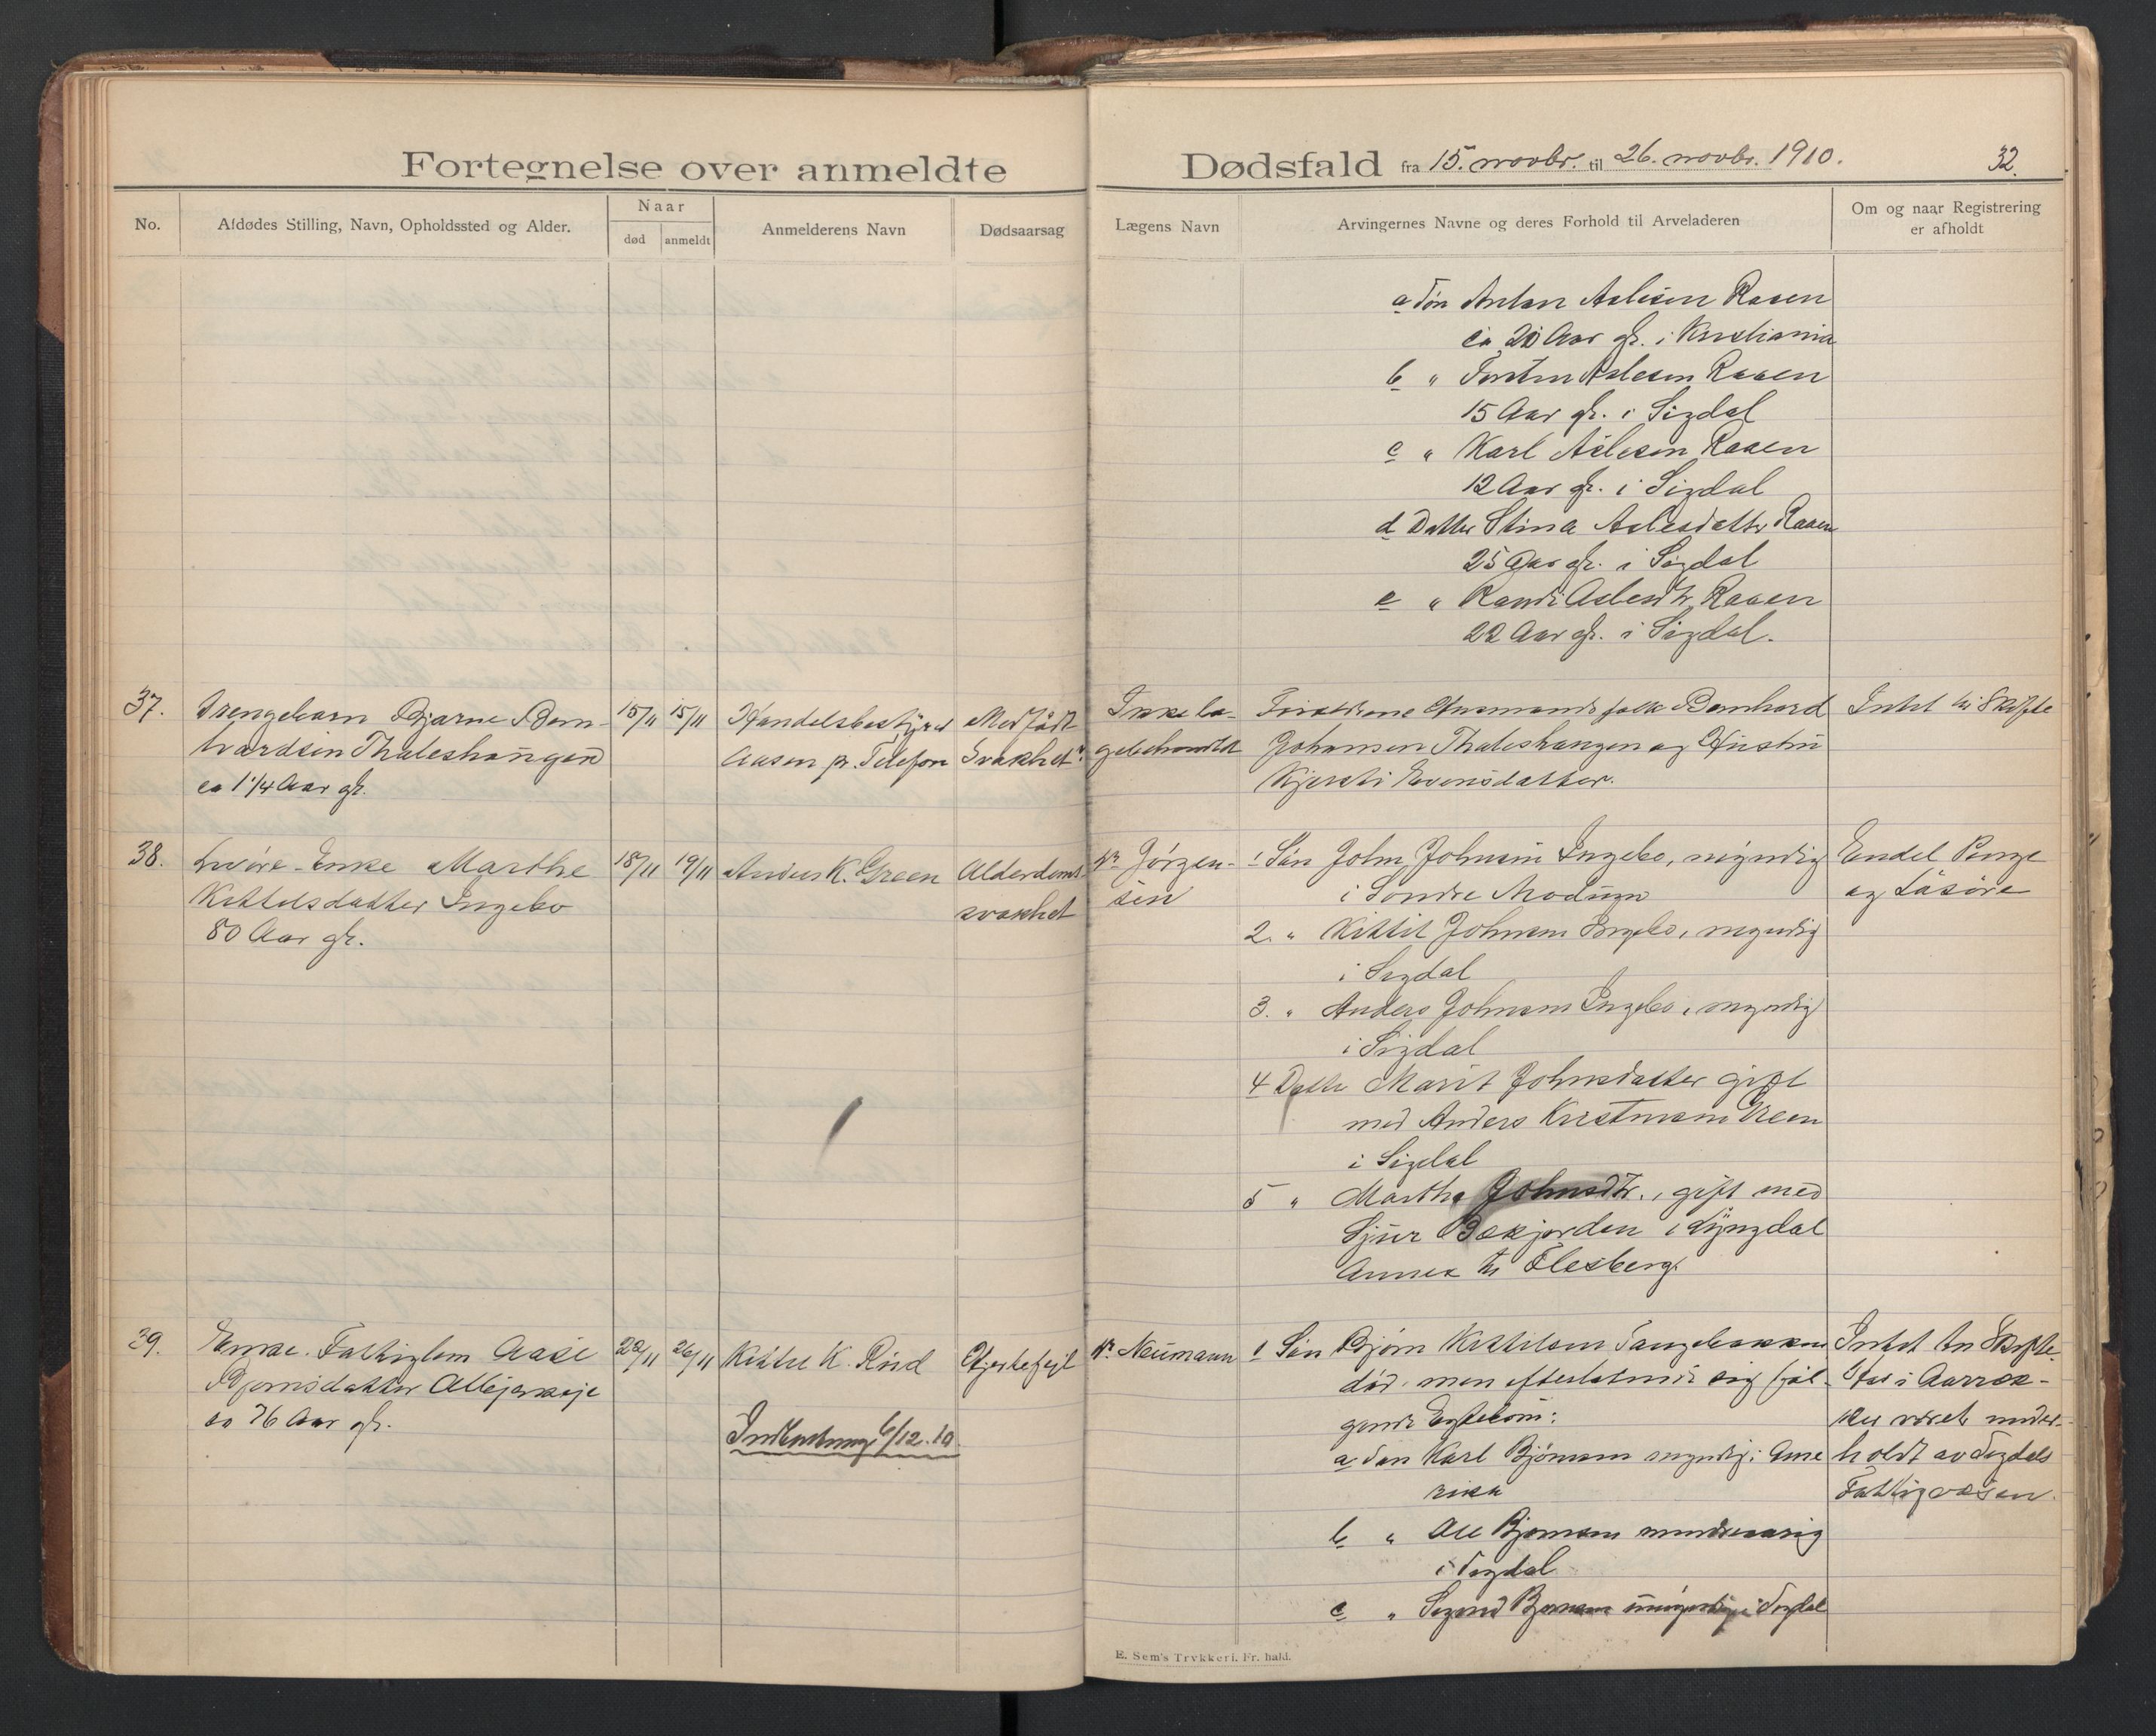 Fortegnelse over anmeldte Dødsfald fra 15. novbr. til 26. novbr. 1910. 32.
No.
Afdødes Stilling, Navn, Opholdssted og Alder.
Naar
død
anmeldt
Anmelderens Navn
Dødsaarsag
Lægens Navn
Arvingernes Navne og deres Forhold til Arveladeren
Om og naar Registrering
er afholdt
a Søn Anton Aslesen Raaen
ca 20 Aar gl. i Kristiania
b " Torsten Aslesen Raaen
15 Aar gl. i Sigdal
c " Karl Aslesen Raaen
12 Aar gl. i Sigdal
d Datter Stina Aslesdatter Raaen
25 Aar gl. i Sigdal
e " Randi Aslesdtr. Raaen
22 Aar gl. i Sigdal.
37.
Drengebarn Bjarne Bern-
hardsen Thaleshaugen
ca 1 1/4 Aar gl.
15/11
15/11
Handelsbestyrer
Aasen pr. Telefon
Medfödt
Svakhet
Ikke læ-
gebehandlet
Forældrene Husmandsfolk Bernhard
Johansen Thaleshaugen og Hustru
Kjersti Evensdatter.
Intet til Skifte
38.
Enke Marthe
Kittelsdatter Ingebo
80 Aar gl.
18/11
19/11
Anders K. Green
Alderdoms-
svakhet
Dr. Jörgen-
sen
1 Sön John Johnsen Ingebo, myndig
i Söndre Modum
2. " Kittil Johnsen Ingebo, myndig
i Sigdal
3. " Anders Johnsen Ingebo, myndig
i Sigdal
4 Datter Marit Johnsdatter gift
med Anders Green
i Sigdal
5 " Marthe Johnsdtr., gift med
Sjur Bækjorden i Lyngdal
Annex til Flesberg.
Endel Penge
og Lösöre
39.
Enke. Fattiglem Aase
Bjørnsdatter
ca 76 Aar gl.
22/11
26/11
Kittel K. Rud
Hjertefejl
6/12.10.
Dr. Neumann
1 Sön Bjørn Kittelsen
död, men efterlatende sig føl-
gende Egtebørn:
a Søn Karl Björnsen myndig i Ame
rika
b " Ole Bjørnsen mindreaarig
i Sigdal
c " i Sigdal
Intet til Skifte.
Har i Aarræk-
ker været under-
holdt av Sigdals
Fattigvæsen.
E. Sem's Trykkeri. Fr. hald.